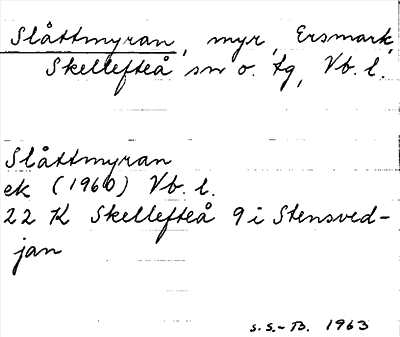 Slåttmyran, myr, Ersmark,
Skellefteå sn o. tg, Vb. l.
Slåttmyran
ek (1960) Vb. l.
22 K Skellefteå 9 i Stensved-
jan
S.S.-B. 1963